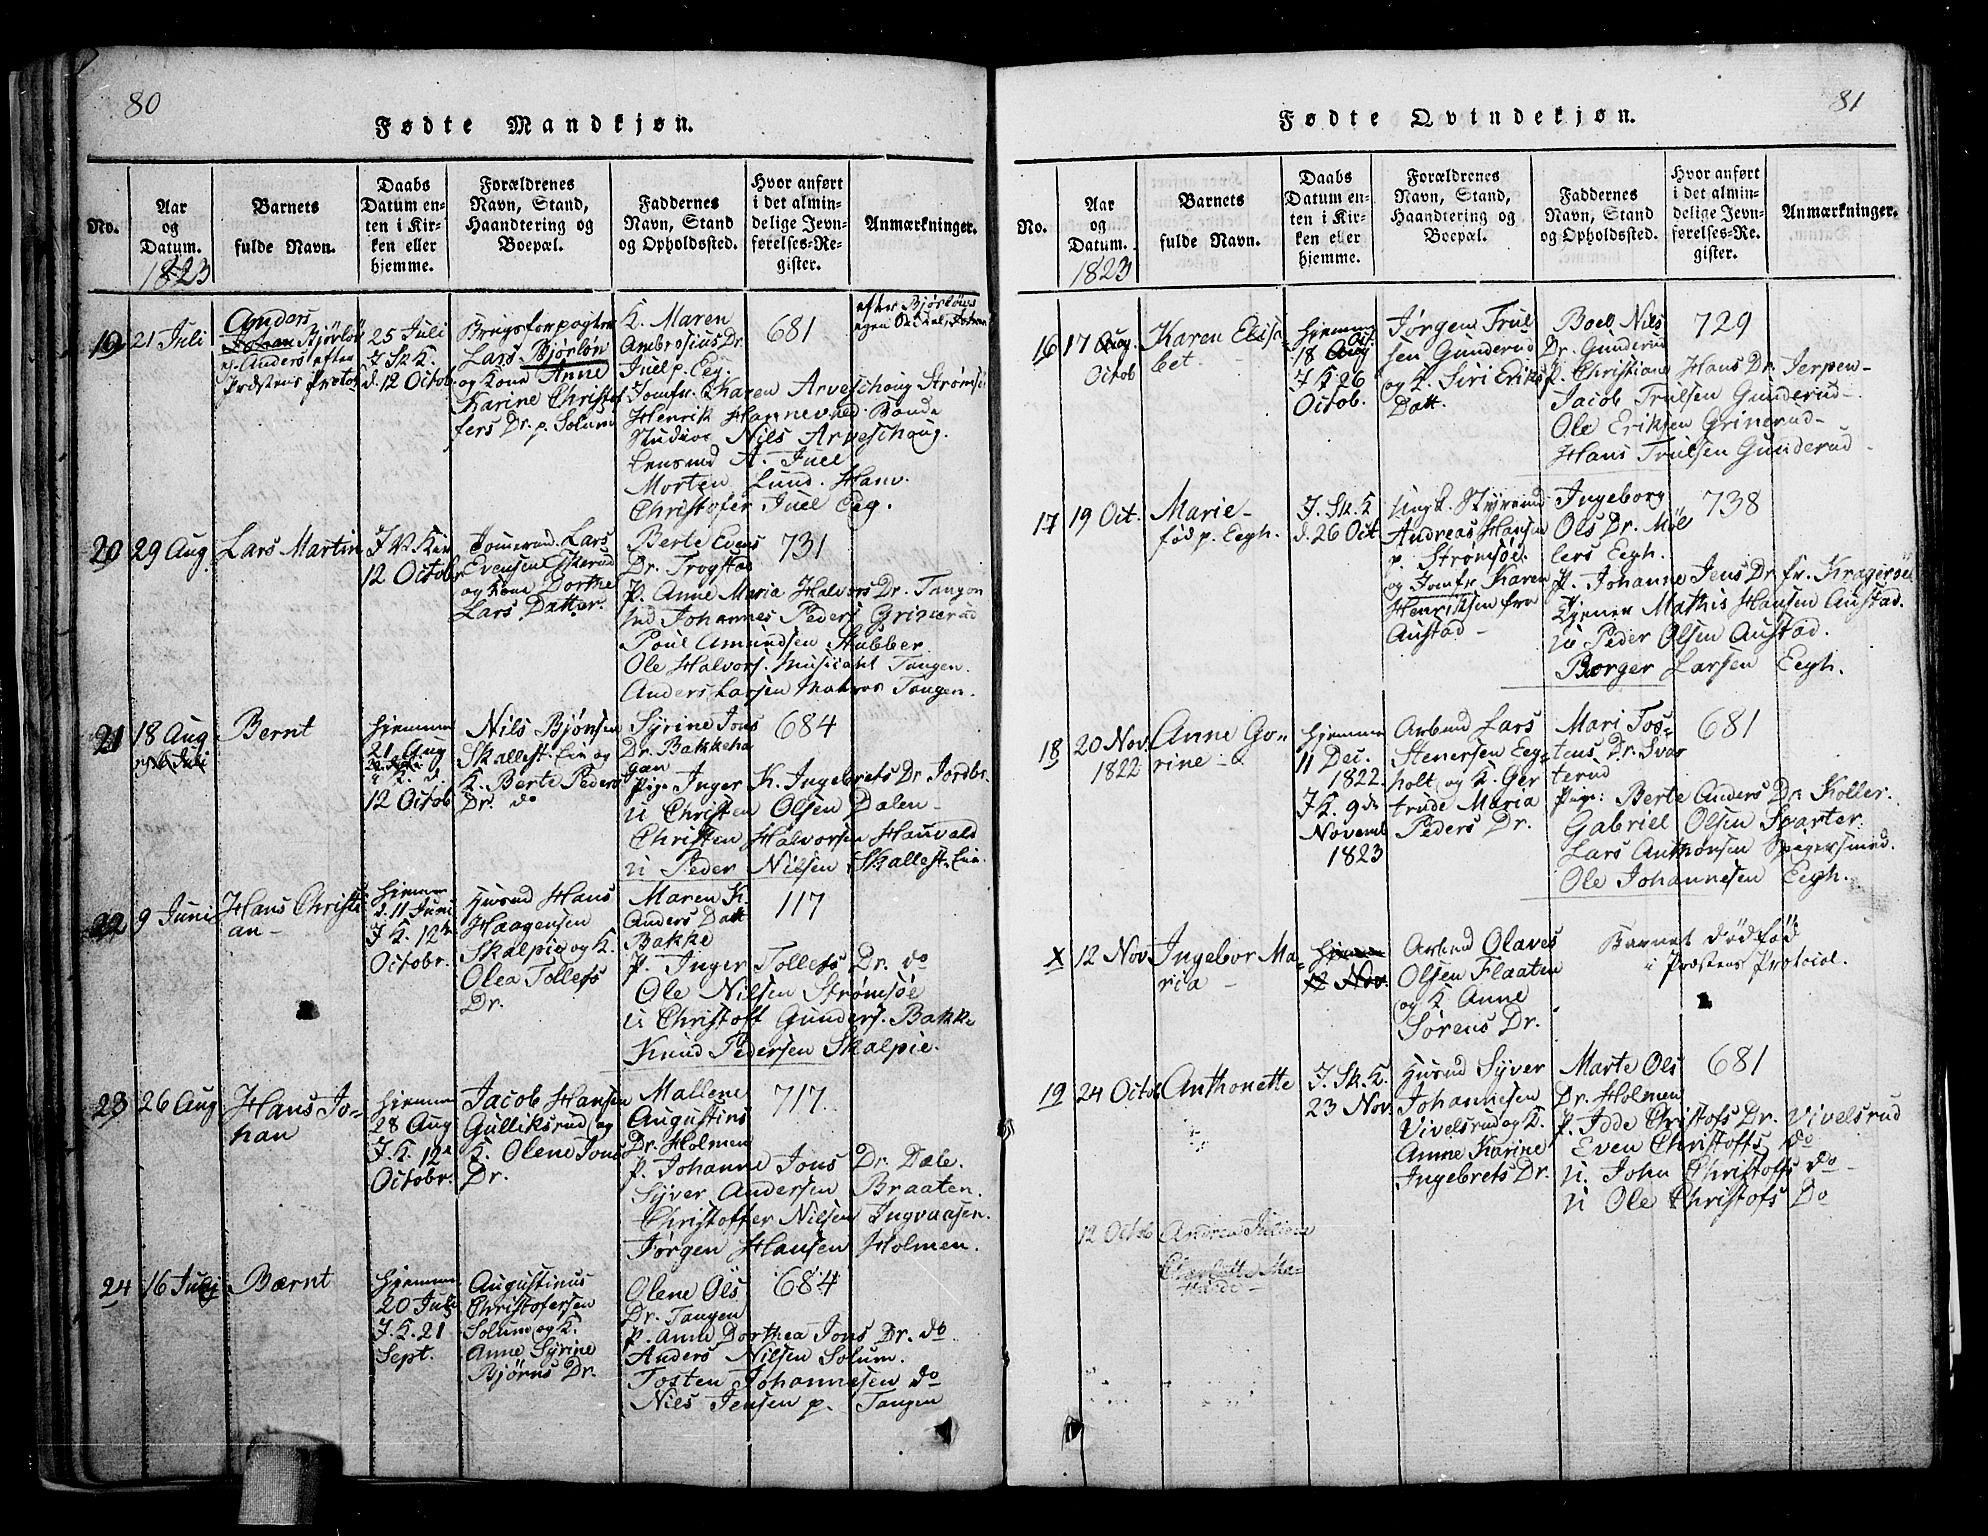 80
Fødte Mandkjøn.
No.
Aar
og
Datum.
1823
Barnets
fulde Navn.
Daabs
Datum en-
ten i Kir-
ken eller
hjemme.
Forældrenes
Navn, Stand,
Haandtering og
Boepæl.
Faddernes
Navn, Stand
og Opholdssted.
Hvor anført
i det almin-
delige Jevn-
førelses-Re-
gister.
Anmærkninger.
19
21 Juli
Anders
Johan Bjørlöv
Anders efter
Præstens Protok
25 Juli
J Sk K.
d. 12 Octob.
Lars Bjørlön
og Kone Anne
Karine Christof
fers Dr. p. Solum
K. Maren
Ambrosius Dr.
Juel p. Eeg.
Jomfr. Karen Arveschoug Strømsö
Henrik Hannevhed Bonde
Studios Nils Arveschoug.
Lensmd A. Juel
Morten Lund. Hanv.
Christofer Juel Eeg.
681
efter Bjørlöws
egen
20
29 Aug
Lars Martin
J V. Kir
12 Octobr
Lars
Evensen Eskerud
og Kone Dorthe
Lars Datter.
Berte Evens
Dr. Trogstad
P. Anne Maria Halvors Dr. Tangen
Johannes Peders Grinerud
Poul Amundsen Stubber
Ole Halvors. Musicant Tangen.
Anders Larsen Matros Tangen.
731
21
18 Aug
Juli
Bernt
Hjemme
21 Aug
K. d.
12 Octob
Nils Bjønsen
Skallest. Eie og
K. Berte Peders
Dr. do
Syrine Jons
Dr. Bakkeha
gan
Pig. Inger K. Ingebrets Dr Jordbr.
U Christen Olsen Dalen-
Christen Halvorsen Hauvald
U Peder Nilsen Skallest. Eie.
684
22
9 Juni
Hans Christi
an-
Hjemme
d. 11 Juni
J K. 12te
Octobr.
Husmd Hans
Haagensen
Skalpie og K.
Olea Tollefs
Dr.
Maren K.
Anders Datt
Bakke
P. Inger Tollefs Dr. do
Ole Nilsen Strømsöe
U Christoff Gunders. Bakke
Knud Pedersen Skalpie.
117
23
26 Aug
Hans Jo-
han
Hjemme
28 Aug
J. K. 12te
Octobr.
Jacob Hansen
Gulliksrud og
K. Olene Jons
Dr.
Mallene
Augustins
Dr. Holmen
P. Johanne Jons Dr. Dale.
Syver Andersen Braaten.
Christoffer Nilsen Ingvaasen.
Jørgen Hansen Holmen.
717
24
16 Julj
Bærnt
Hjemme
20 Juli
J. K. 21
Sept.
Augustinus
Christofersen
Solum og K.
Anne Syrine
Bjørns Dr.
Olene Ols
Dr. Tangen
P. Anne Dorthea Jons Dr. do
Anders Nilsen Solum.
Tosten Johannesen do
Nils Jensen p. Tangen
684
81
Fødte Qvindekjøn.
No.
Aar
og
Datum.
1823
Barnets
fulde Navn.
Daabs
Datum en-
ten i Kir-
ken eller
hjemme.
Forældrenes
Navn, Stand,
Haandtering og
Boepæl.
Faddernes
Navn, Stand
og Opholdssted.
Hvor anført
i det almin-
delige Jevn-
førelses-Re-
gister.
Anmærkninger.
16
17 Aug.
Octob
Karen Elisa
bet.
Hjemme
Oct.
18 Aug
J K 26
Octob.
Jørgen Trul
sen Gunderud
og K. Siri Eriks
Datt.
Boel Nils
Dr. Gunderud
P. Christiane Hans Dr. Jerpen-
Jacob Trulsen Gunderud-
Ole Eriksen Grinerud-
Hans Trulsen Gunderud-
729
17
19 Oct.
Marie-
fød p. Eegh.
J. Sk. K
d. 26 Oct
Ungk. Styrmd
Andreas Hansen
p. Strømsöe.
og Jomfr Karen
Henriksen fra
Austad-
Ingeborg
Ols Dr. Möl
lers Eegh.
P. Johanne Jens Dr fr. Krageröe
Tjener Mathis Hansen Austad.
U Peder Olsen Austad.
Børger Larsen Eegh.
738
18
20 Nov.
1822
Anne Go-
rine-
Hjemme
11 Dec.
1822.
J K. 9de
Novemb
1823
Arbmd Lars
Stenersen Eeg-
holt og K. Ger
trude Maria
Peders Dr.
Mari Tos-
tens Dr. Svar
terud
Pige: Berte Anders Dr. Koller.
Gabriel Olsen Svarter.
Lars Anthonsen Spegersmed.
Ole Johannesen Eegh.
681
X
12 Nov
Ingebor Ma-
ria-
Hjemme
12 Nov.
Arbmd Olaves
Olsen Flaaten
og K Anne
Sørens Dr.
Barnet dödföd
i Præstens Protocol.
19
24 Octob
Anthonette
J. Sk. K.
23 Nov.
Husmd Syver
Johannesen
Vivelsrud og K.
Anne Karine
Ingebrets Dr.
Marte Ols
Dr. Holmen
P. Idde Christofs Dr. Vivelsrud
Even Christoffs do
U. John Christofs do-
U Ole Christofs Do
681
12 Octob
Andrea Juline
Charlotte Ma-
thilde-